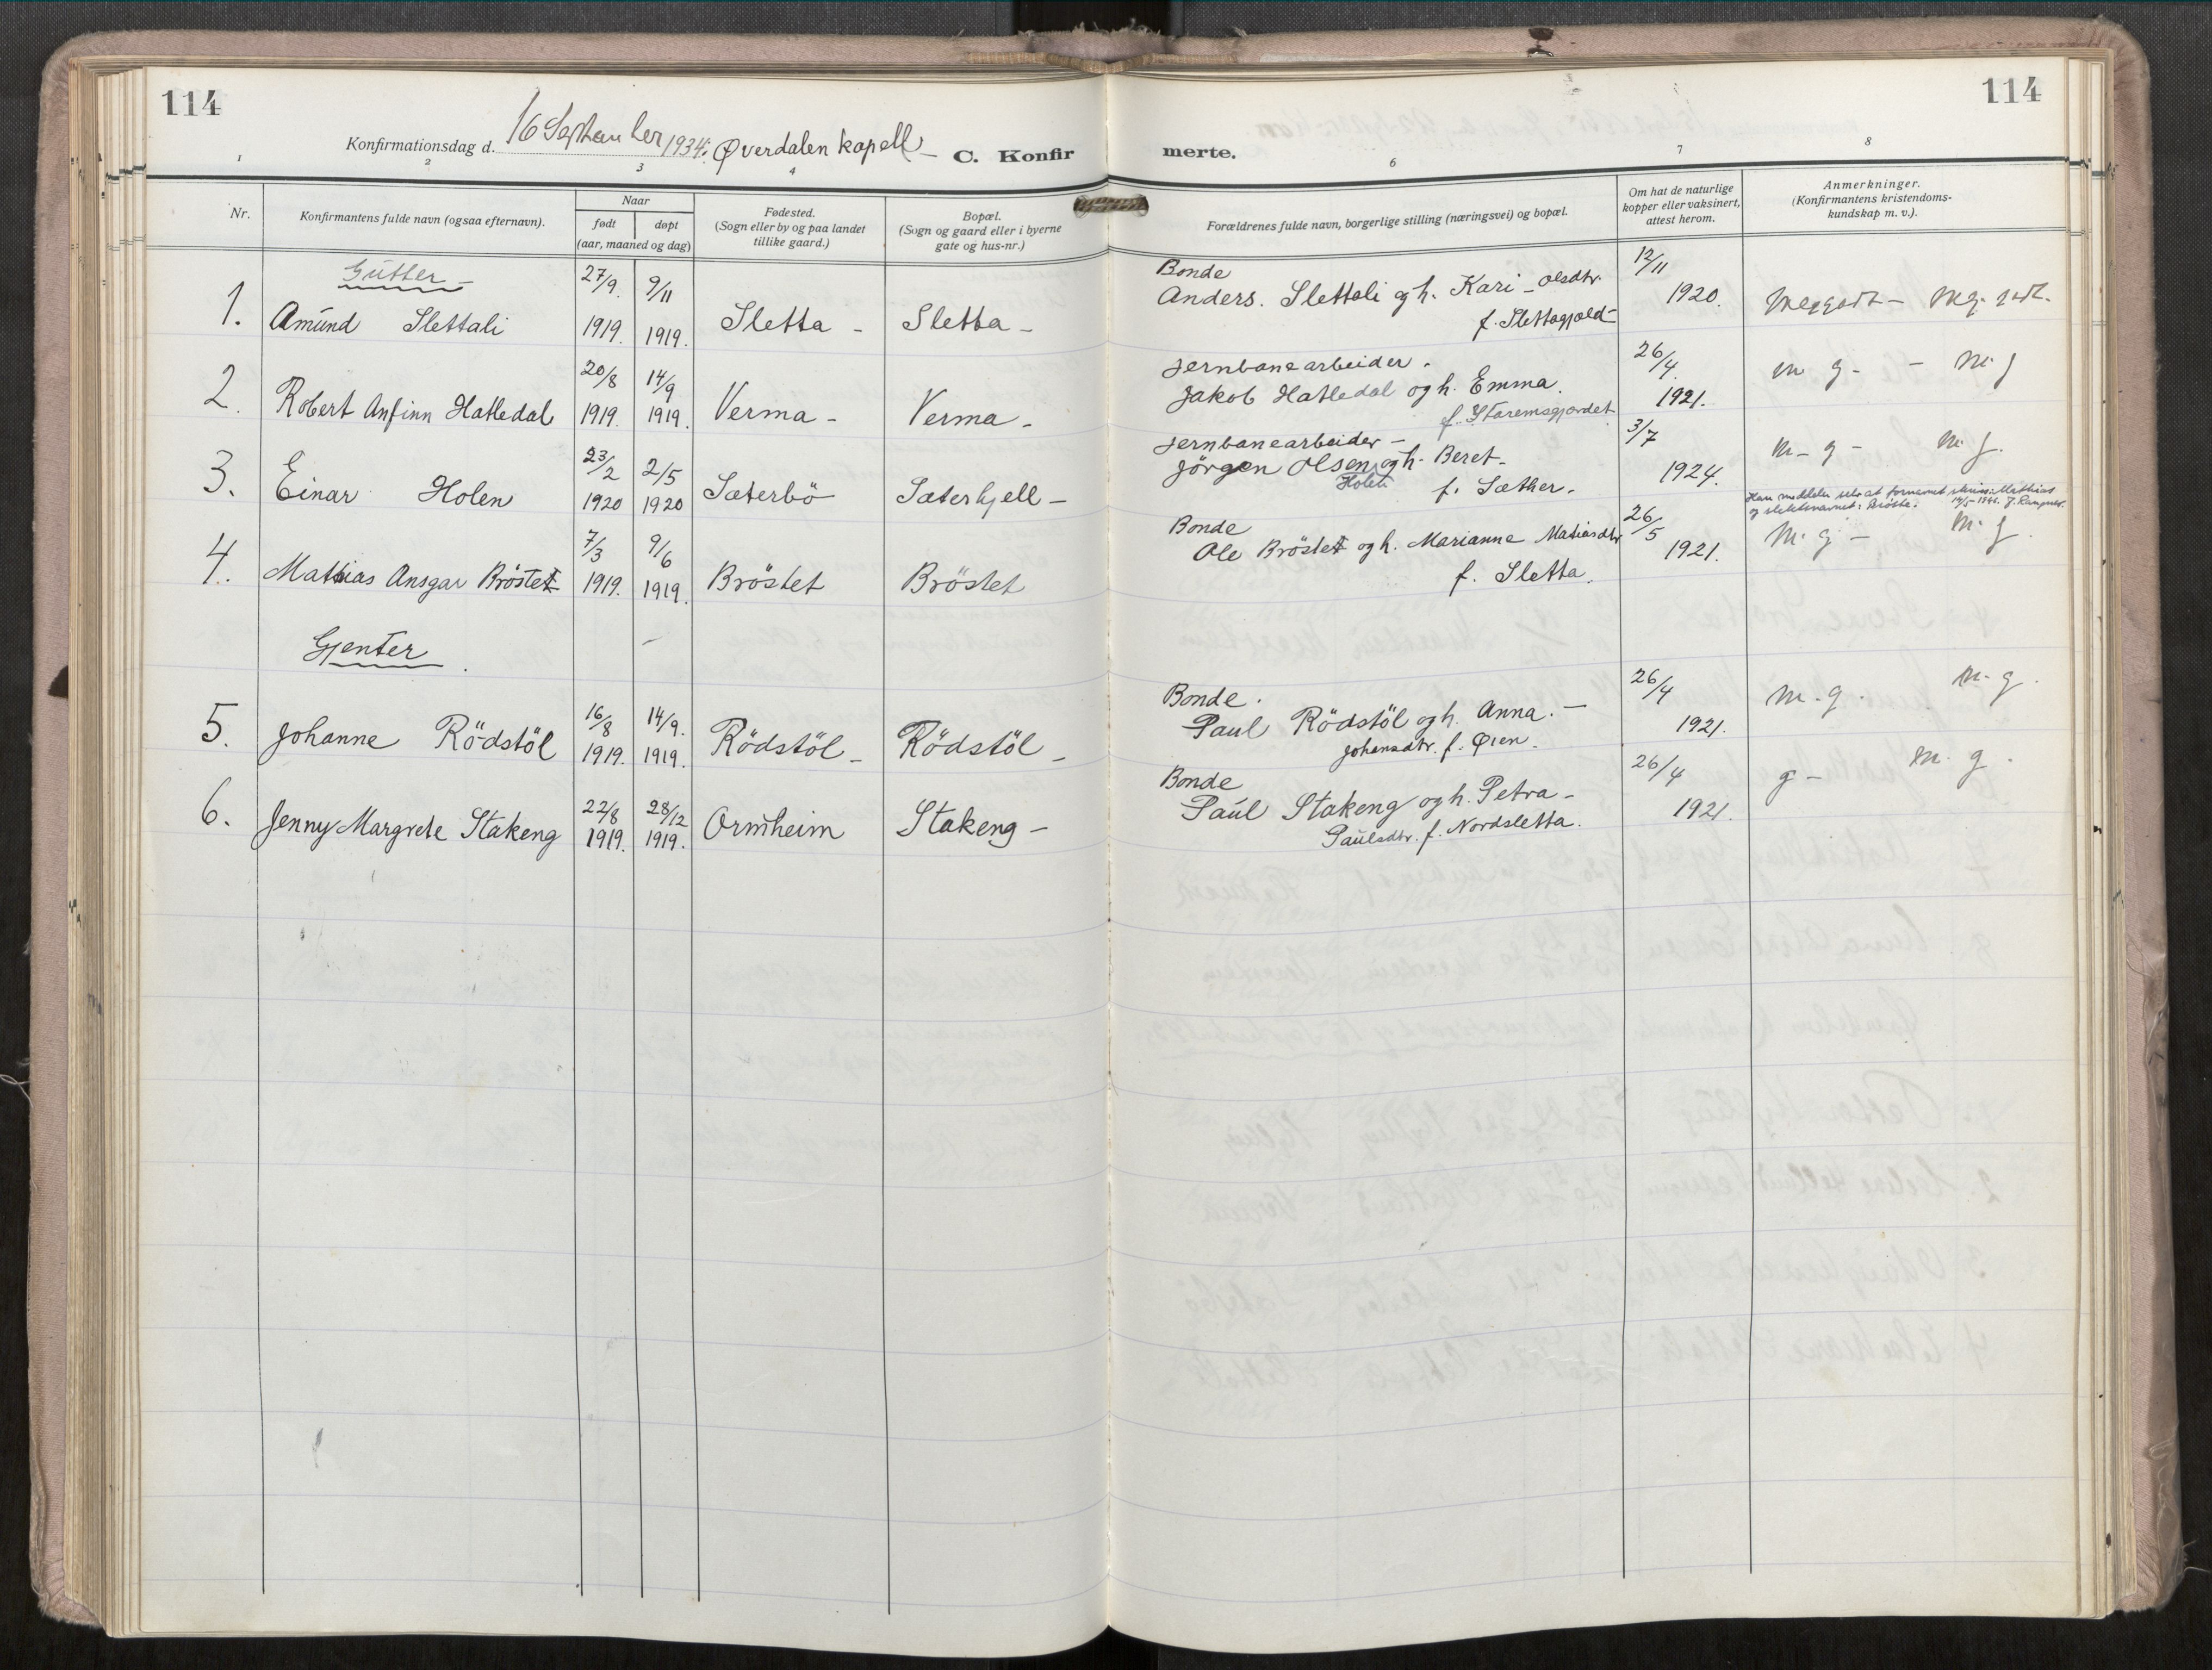 114
114
Konfirmationsdag d. 16 September 1934. Øverdalen kapell –
C. Konfir
merte.
1
2
3
4
6
7
8
Nr.
Konfirmantens fulde navn (ogsaa efternavn).
Naar
født
døpt
(aar, maaned og dag)
Fødested.
(Sogn eller by og paa landet
tillike gaard.)
Bopæl.
(Sogn og gaard eller i byerne
gate og hus-nr.)
Forældrenes fulde navn, borgerlige stilling (næringsvei) og bopæl.
Om hat de naturlige
kopper eller vaksinert,
attest herom.
Anmerkninger.
(Konfirmantens kristendoms-
kundskap m. v.).
Gutter –
27/9. 9/11 Bonde 12/11
1. Amund Slettali 1919. 1919. Sletta – Sletta – Anders. Slettali og h. Kari – Olsdtr. 1920. Meg godt –
f. Slettagjæld –
20/8 14/9 Jernbanearbeider. 26/4.
2. Robert Anfinn Hatledal 1919. 1919. Verma – Verma – Jakob Hatledal og h. Emma. 1921. m g – m g
f. Staremsgjærdet
23/2 2/5 Jernbanearbeider – 3/7
3. Einar Holen 1920 1920 Sæterbö Sæterhjell – Jörgen Olsen og h. Beret – 1924. m – g – m g.
Holen f. Sæther.
Han meddeler selv at fornavnet skrives: Mathias
og slektsnavnet: Brøste. 14/5-1946.
7/3 9/6 Bonde 26/5
4. Mathias Ansgar Bröstet 1919. 1919. Bröstet Bröstet Ole Bröstet og h. Marianne Matiasdtr 1921. M. g – m. g.
f. Sletta.
Gjenter –
16/8 14/9. Bonde. 26/4
5. Johanne Rödstöl 1919. 1919. Rödstöl – Rödstöl – Paul Rödstöl og h. Anna. – 1921. m. g. m. g.
Johansdtr. f. Øien.
22/8 28/12 Bonde 26/4
6. Jenny Margrete Stakeng 1919. 1919. Ormheim Stakeng – Paul Stakeng og h. Petra – 1921. g – m. g.
Paulsdtr. f. Nordsletta.